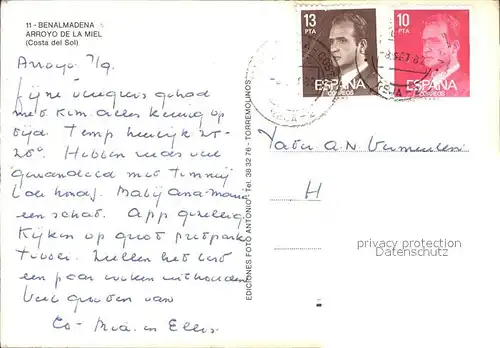 11 - BENALMADENA
ARROYO DE LA MIEL
(Costa del Sol)
Arroyo 7/9.
Fijne vliegreis gehad
met Kim. alles keurig op
tijd. Temp heerlijk 25-
28°. Hebben reeds veel
gewandeld met Timmy
een schat. App gezellig.
Kijken op groot pretpark
Tivoli. Zullen het best
een paar weken uithouden
Veel groeten van
Co - Mia en Ellis
EDICIONES FOTO ANTONIO - Tel. 38 32 76 - TORREMOLINOS
13
PTA
ESPAÑA
CORREOS
10
PTA
ESPAÑA
CORREOS
A.N. Vermeulen
H
privacy protection
Datenschutz